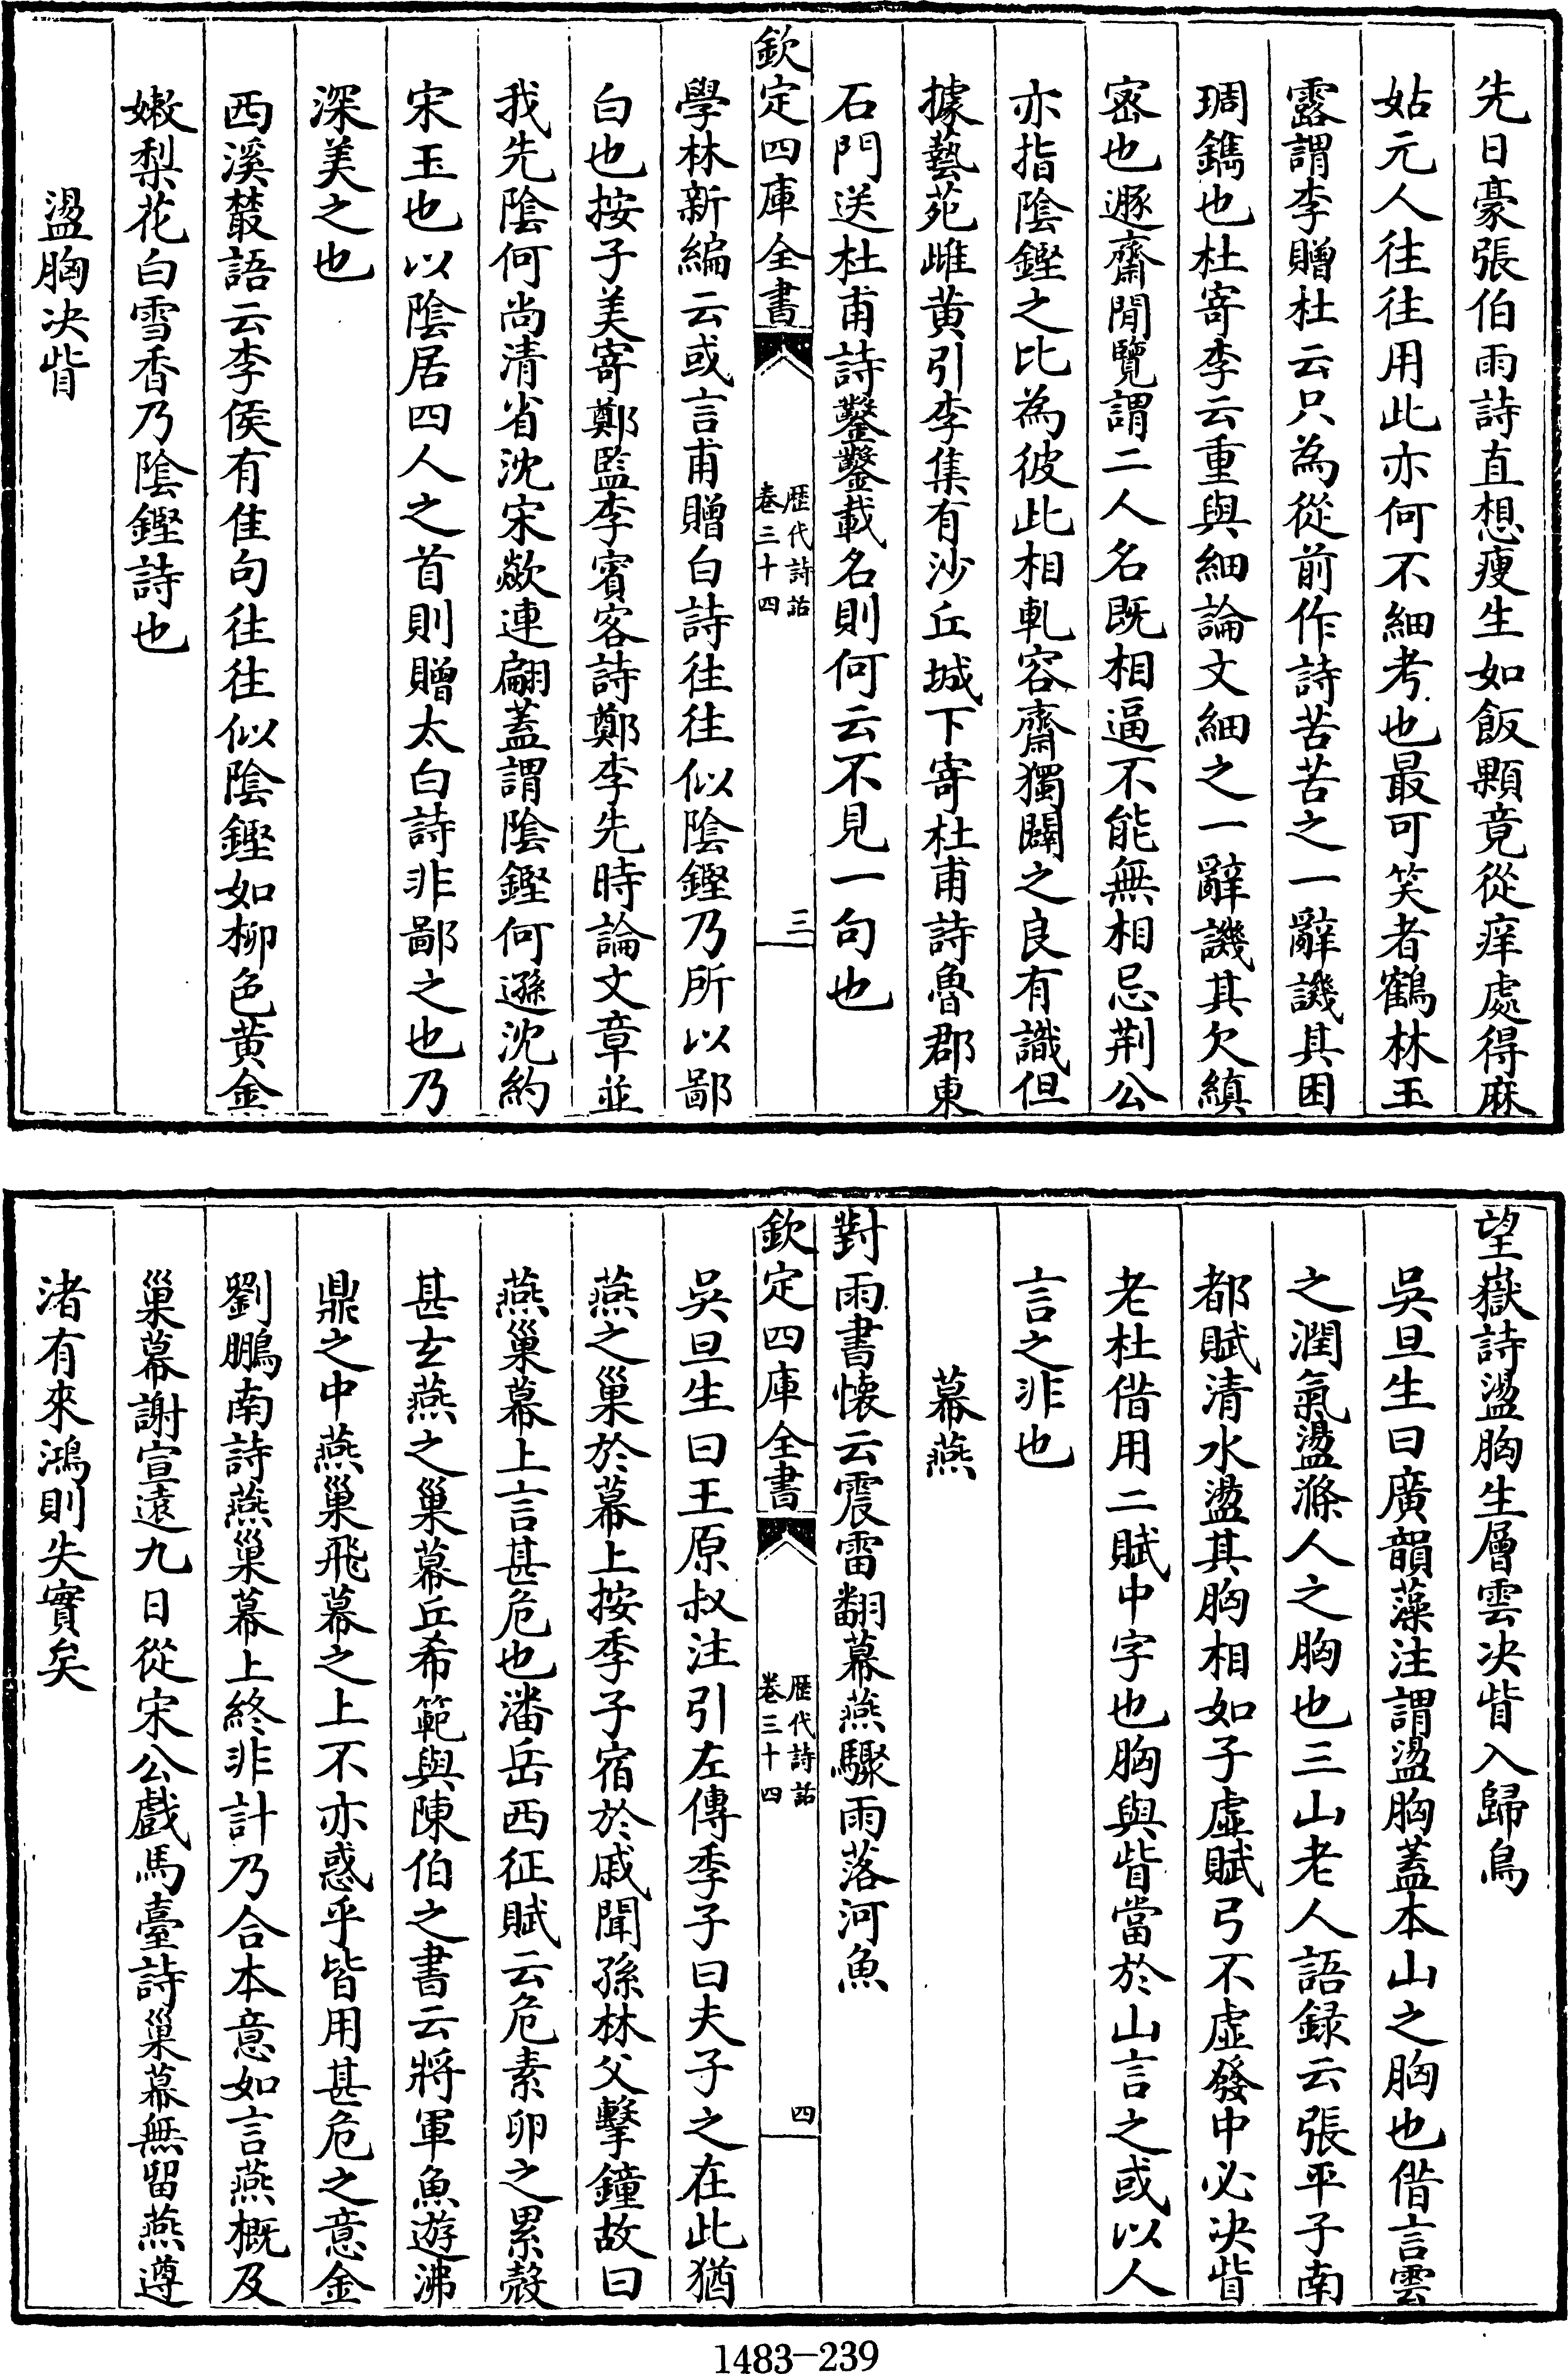 先日豪張伯雨詩直想瘦生如飯顆竟從痒處得麻
姑元人往往用此亦何不細考也最可笑者鶴林玉
露謂李贈杜云只為從前作詩苦苦之一辭譏其困
琱鐫也杜寄李云重與細論文細之一辭譏其欠縝
宻也遯齋閒覽謂二人名既相逼不能無相忌荆公
亦指陰鏗之比為彼此相軋容齋獨闢之良有識但
據藝苑雌黄引李集有沙丘城下寄杜甫詩魯郡東
石門送杜甫詩鑿鑿載名則何云不見一句也
欽定四庫全書
歴代詩話
卷三十四
三
學林新編云或言甫贈白詩往往似陰鏗乃所以鄙
白也按子美寄鄭監李賓客詩鄭李先時論文章並
我先陰何尚清省沈宋歘連翩蓋謂陰鏗何遜沈約
宋玉也以陰居四人之首則贈太白詩非鄙之也乃
深美之也
西溪叢語云李侯有佳句往往似陰鏗如栁色黄金
嫩梨花白雪香乃陰鏗詩也
盪胸决眥
望嶽詩盪胸生層雲决眥入歸鳥
吳旦生曰廣韻藻注謂盪胸蓋本山之胸也借言雲
之潤氣盪滌人之胸也三山老人語録云張平子南
都賦清水盪其胸相如子虛賦弓不虛發中必决眥
老杜借用二賦中字也胸與眥當於山言之或以人
言之非也
幕燕
對雨書懐云震雷翻幕燕驟雨落河魚
欽定四庫全書
歴代詩話
卷三十四
四
吳旦生曰王原叔注引左傳季子曰夫子之在此猶
燕之巢於幕上按季子宿於戚聞孫林父擊鐘故曰
燕巢幕上言甚危也潘岳西征賦云危素卵之累殻
甚玄燕之巢幕丘希範與陳伯之書云將軍魚遊沸
鼎之中燕巢飛幕之上不亦惑乎皆用甚危之意金
劉鵬南詩燕巢幕上終非計乃合本意如言燕概及
巢幕謝宣遠九日從宋公戲馬臺詩巢幕無留燕遵
渚有來鴻則失實矣
1483-239